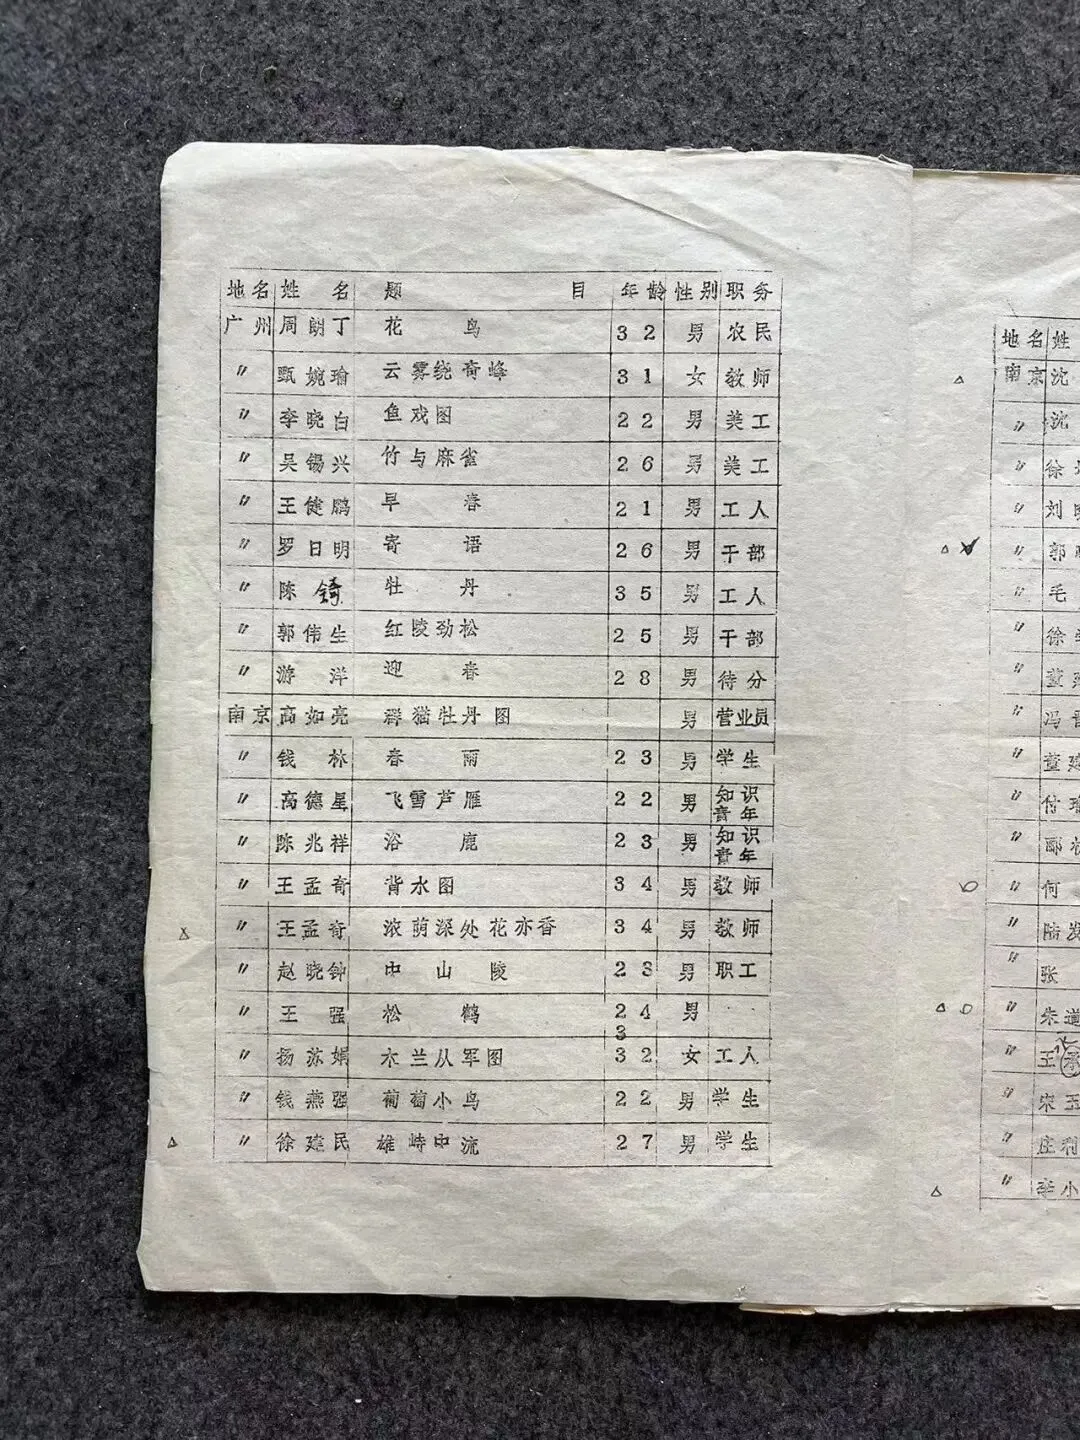 地名 姓名 题目 年龄 性别 职务
广州 周朗丁 花鸟 32 男 农民
〃 甄婉瑜 云雾绕奇峰 31 女 教师
〃 李晓白 鱼戏图 22 男 美工
〃 吴锡兴 竹与麻雀 26 男 美工
〃 王健鹏 早春 21 男 工人
〃 罗日明 寄语 26 男 干部
〃 陈錡 牡丹 35 男 工人
〃 郭伟生 红陵劲松 25 男 干部
〃 游洋 迎春 28 男 待分
南京 高如亮 群猫牡丹图 男 营业员
〃 钱林 春雨 23 男 学生
〃 高德星 飞雪芦雁 22 男 知识青年
〃 陈兆祥 浴鹿 23 男 知识青年
〃 王孟奇 背水图 34 男 教师
〃 王孟奇 浓荫深处花亦香 34 男 教师
〃 赵晓钟 中山陵 23 男 职工
〃 王强 松鹤 24 男
3
〃 扬苏娟 木兰从军图 32 女 工人
〃 钱燕强 葡萄小鸟 22 男 学生
〃 徐建民 雄峙中流 27 男 学生
地名 姓
南京 沈
〃 沈
〃 徐
〃 刘
〃 郭
〃 毛
〃 徐
〃 董
〃 冯
〃 董建
〃 付
〃 郦
〃 何
〃 陆发
〃 张
〃 朱道
〃 王承
〃 宋玉
〃 庄利
〃 李小